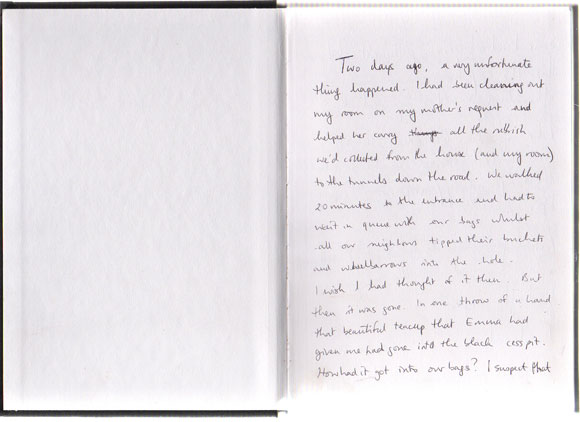 Two days ago, a very unfortunate
thing happened. I had been cleaning out
my room on my mother's request and
helped her carry things all the rubbish
we'd collected from the house (and my room)
to the tunnels down the road. We walked
20 minutes to the entrance and had to
wait in queue with our bags whilst
all our neighbours tipped their buckets
and wheelbarrows into the hole.
I wish I had thought of it then. But
then it was gone. In one throw of a hand
that beautiful teacup that Emma had
given me had gone into the black cess pit.
How had it got into our bags? I suspect that